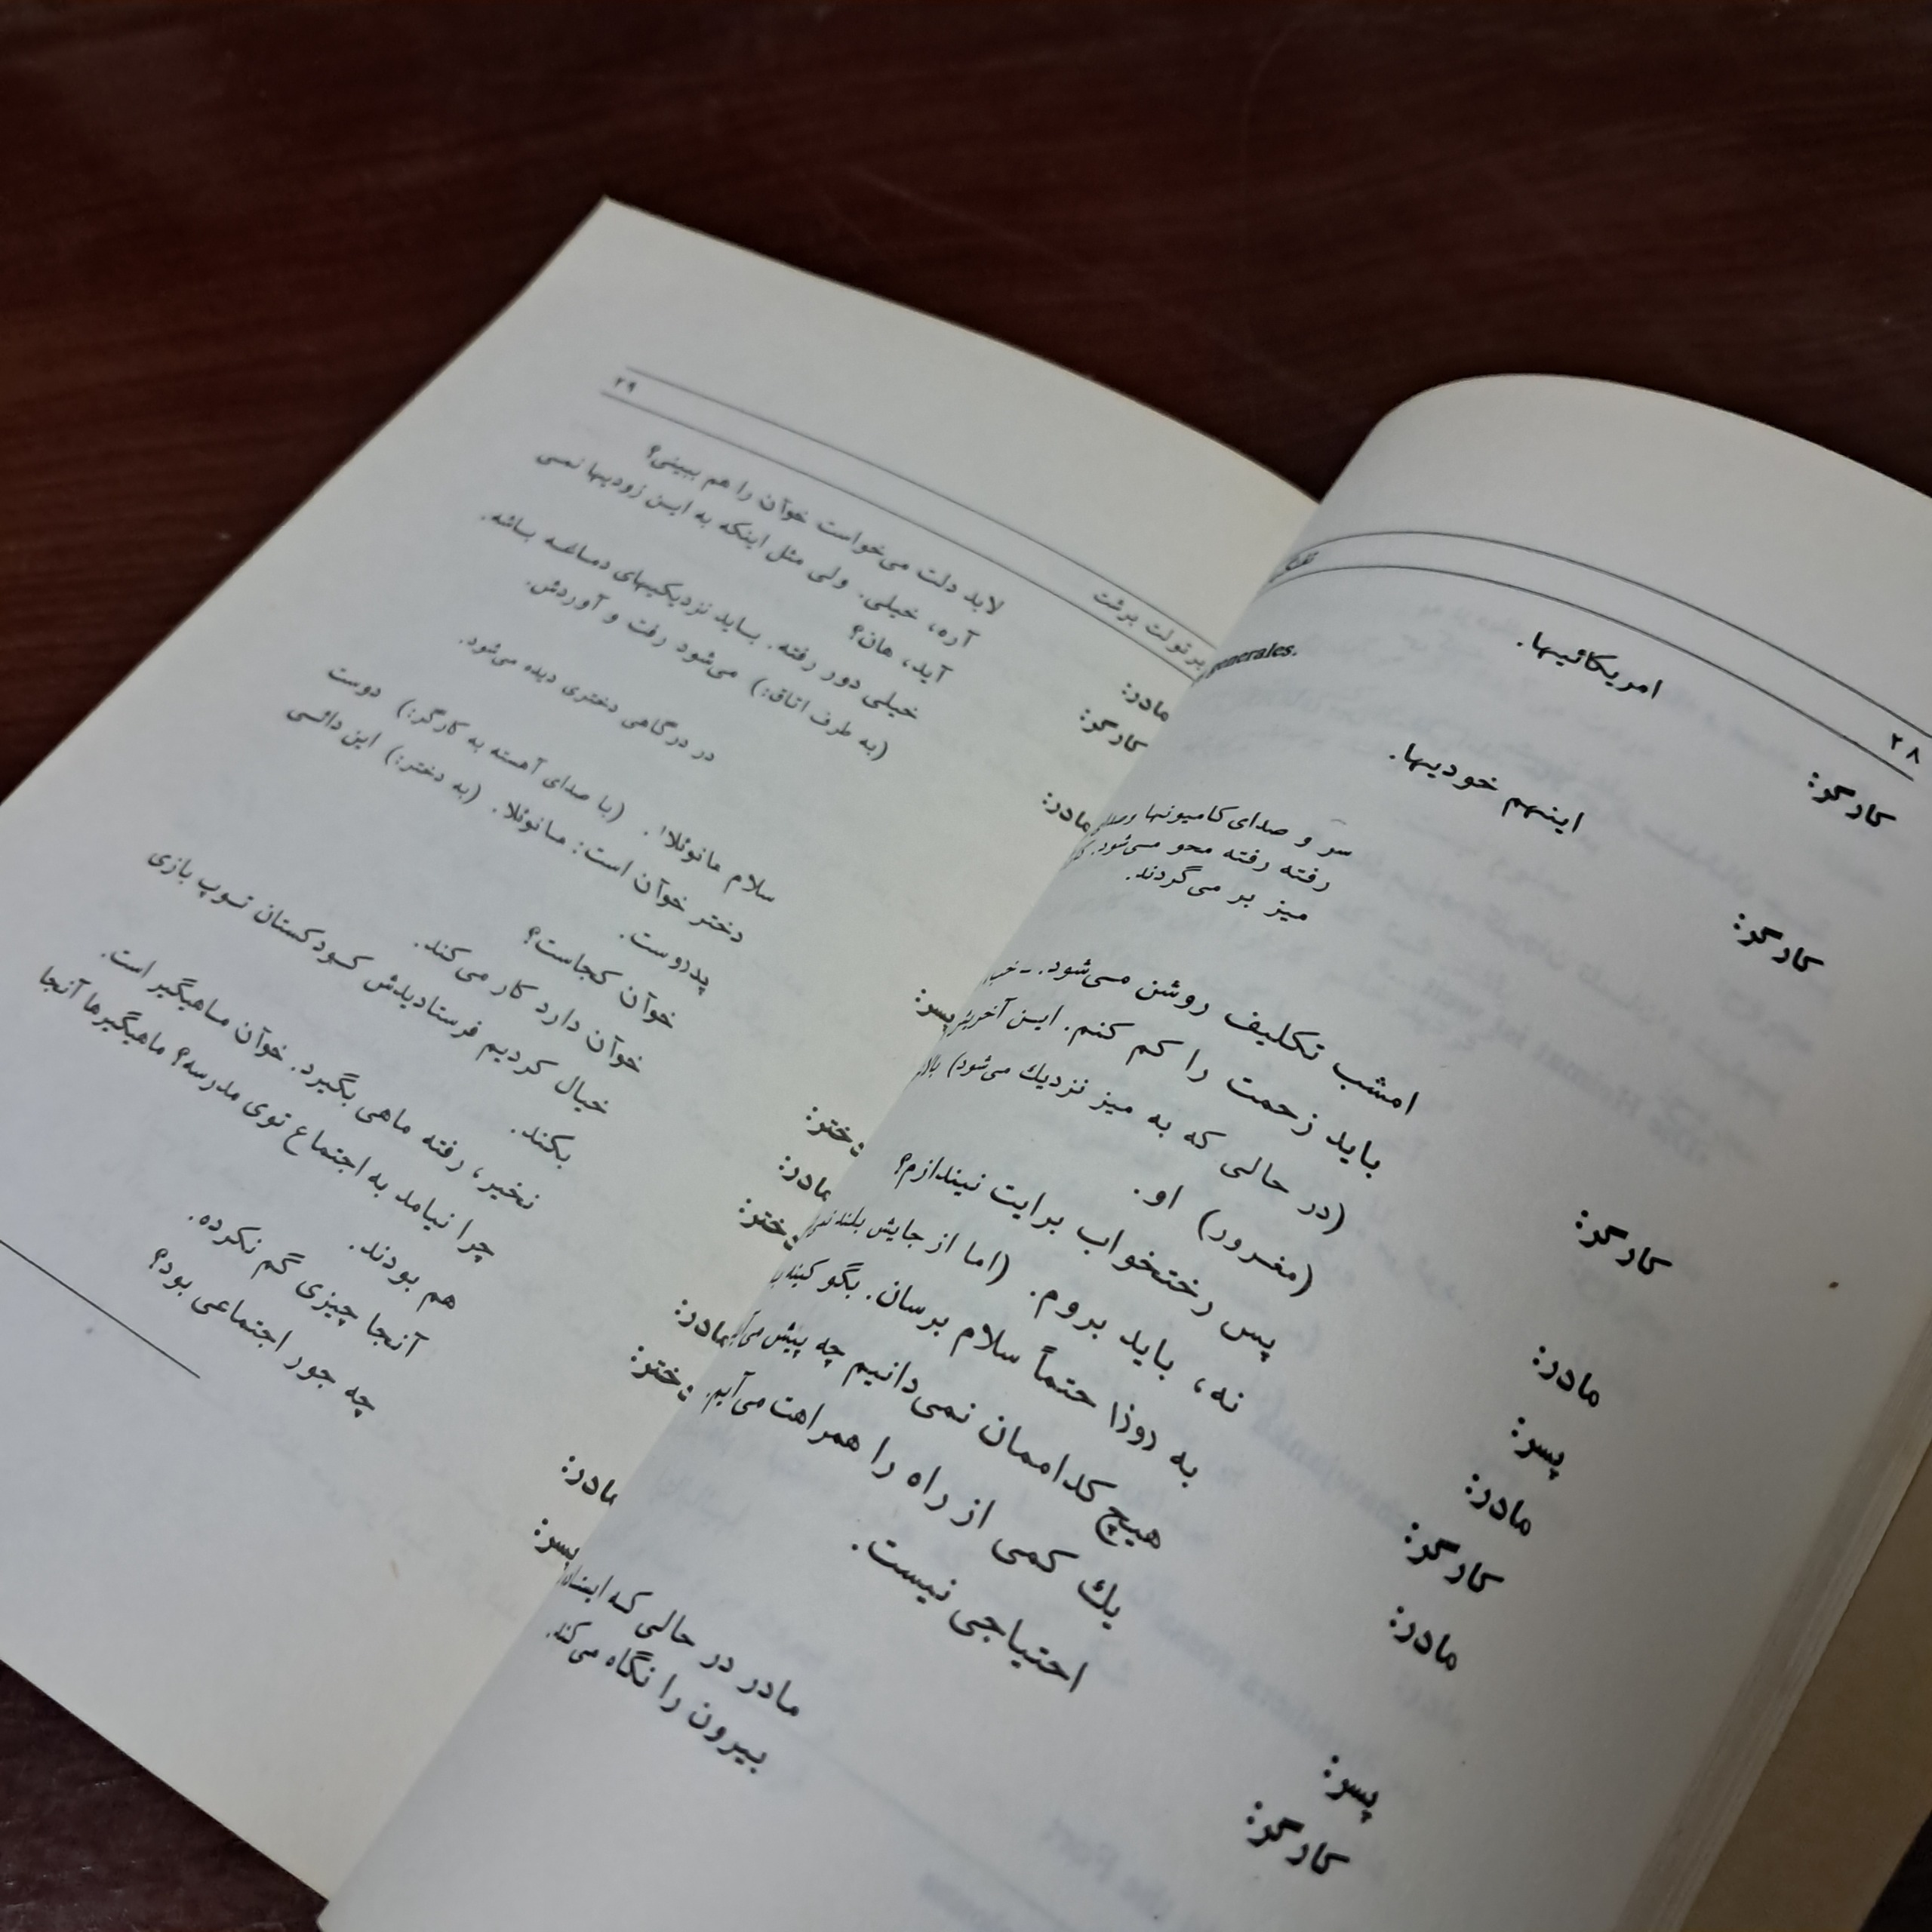 ۲۸
کارگر:
امریکائیها.
generales.
کارگر:
اینهم خودیها.
سر و صدای کامیونها و
رفته رفته محو می‌شود.
میز بر می‌گردند.
کارگر:
امشب تکلیف روشن می‌شود. ــ
باید زحمت را کم کنم. این آخرین
(در حالی که به میز نزدیك می‌شود)
مادر:
(مغرور) او.
پسر:
پس رختخواب برایت نیندازم؟
مادر:
نه، باید بروم. (اما از جایش بلند
کارگر:
به روزا حتماً سلام برسان. بگو کینه
مادر:
هیچ کداممان نمی‌دانیم چه پیش می‌آید
پسر:
یك کمی از راه را همراهت می‌آیم.
کارگر:
احتیاجی نیست.
مادر در حالی که
بیرون را نگاه می‌کند.
برتولت برشت
۲۹
مادر:
لابد دلت می‌خواست خوآن را هم ببینی؟
کارگر:
آره، خیلی. ولی مثل اینکه به این زودیها نمی
آید، هان؟
مادر:
خیلی دور رفته. باید نزدیکیهای دماغه باشه.
(به طرف اتاق:) می‌شود رفت و آوردش.
در درگاهی دختری دیده می‌شود.
پسر:
سلام مانوئلا. (با صدای آهسته به کارگر:) دوست
دختر خوآن است: مانوئلا. (به دختر:) این دائی
پدروست.
دختر:
خوآن کجاست؟
مادر:
خوآن دارد کار می‌کند.
دختر:
خیال کردیم فرستادیدش کودکستان توپ بازی
بکند.
مادر:
نخیر، رفته ماهی بگیرد. خوآن ماهیگیر است.
دختر:
چرا نیامد به اجتماع توی مدرسه؟ ماهیگیرها آنجا
هم بودند.
مادر:
آنجا چیزی گم نکرده.
پسر:
چه جور اجتماعی بود؟